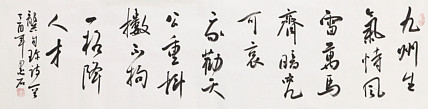 九州生
氣恃風
雷萬馬
齊喑究
可哀
我勸天
公重抖
擻不拘
一格降
人才
龔自珍詩
丁酉年